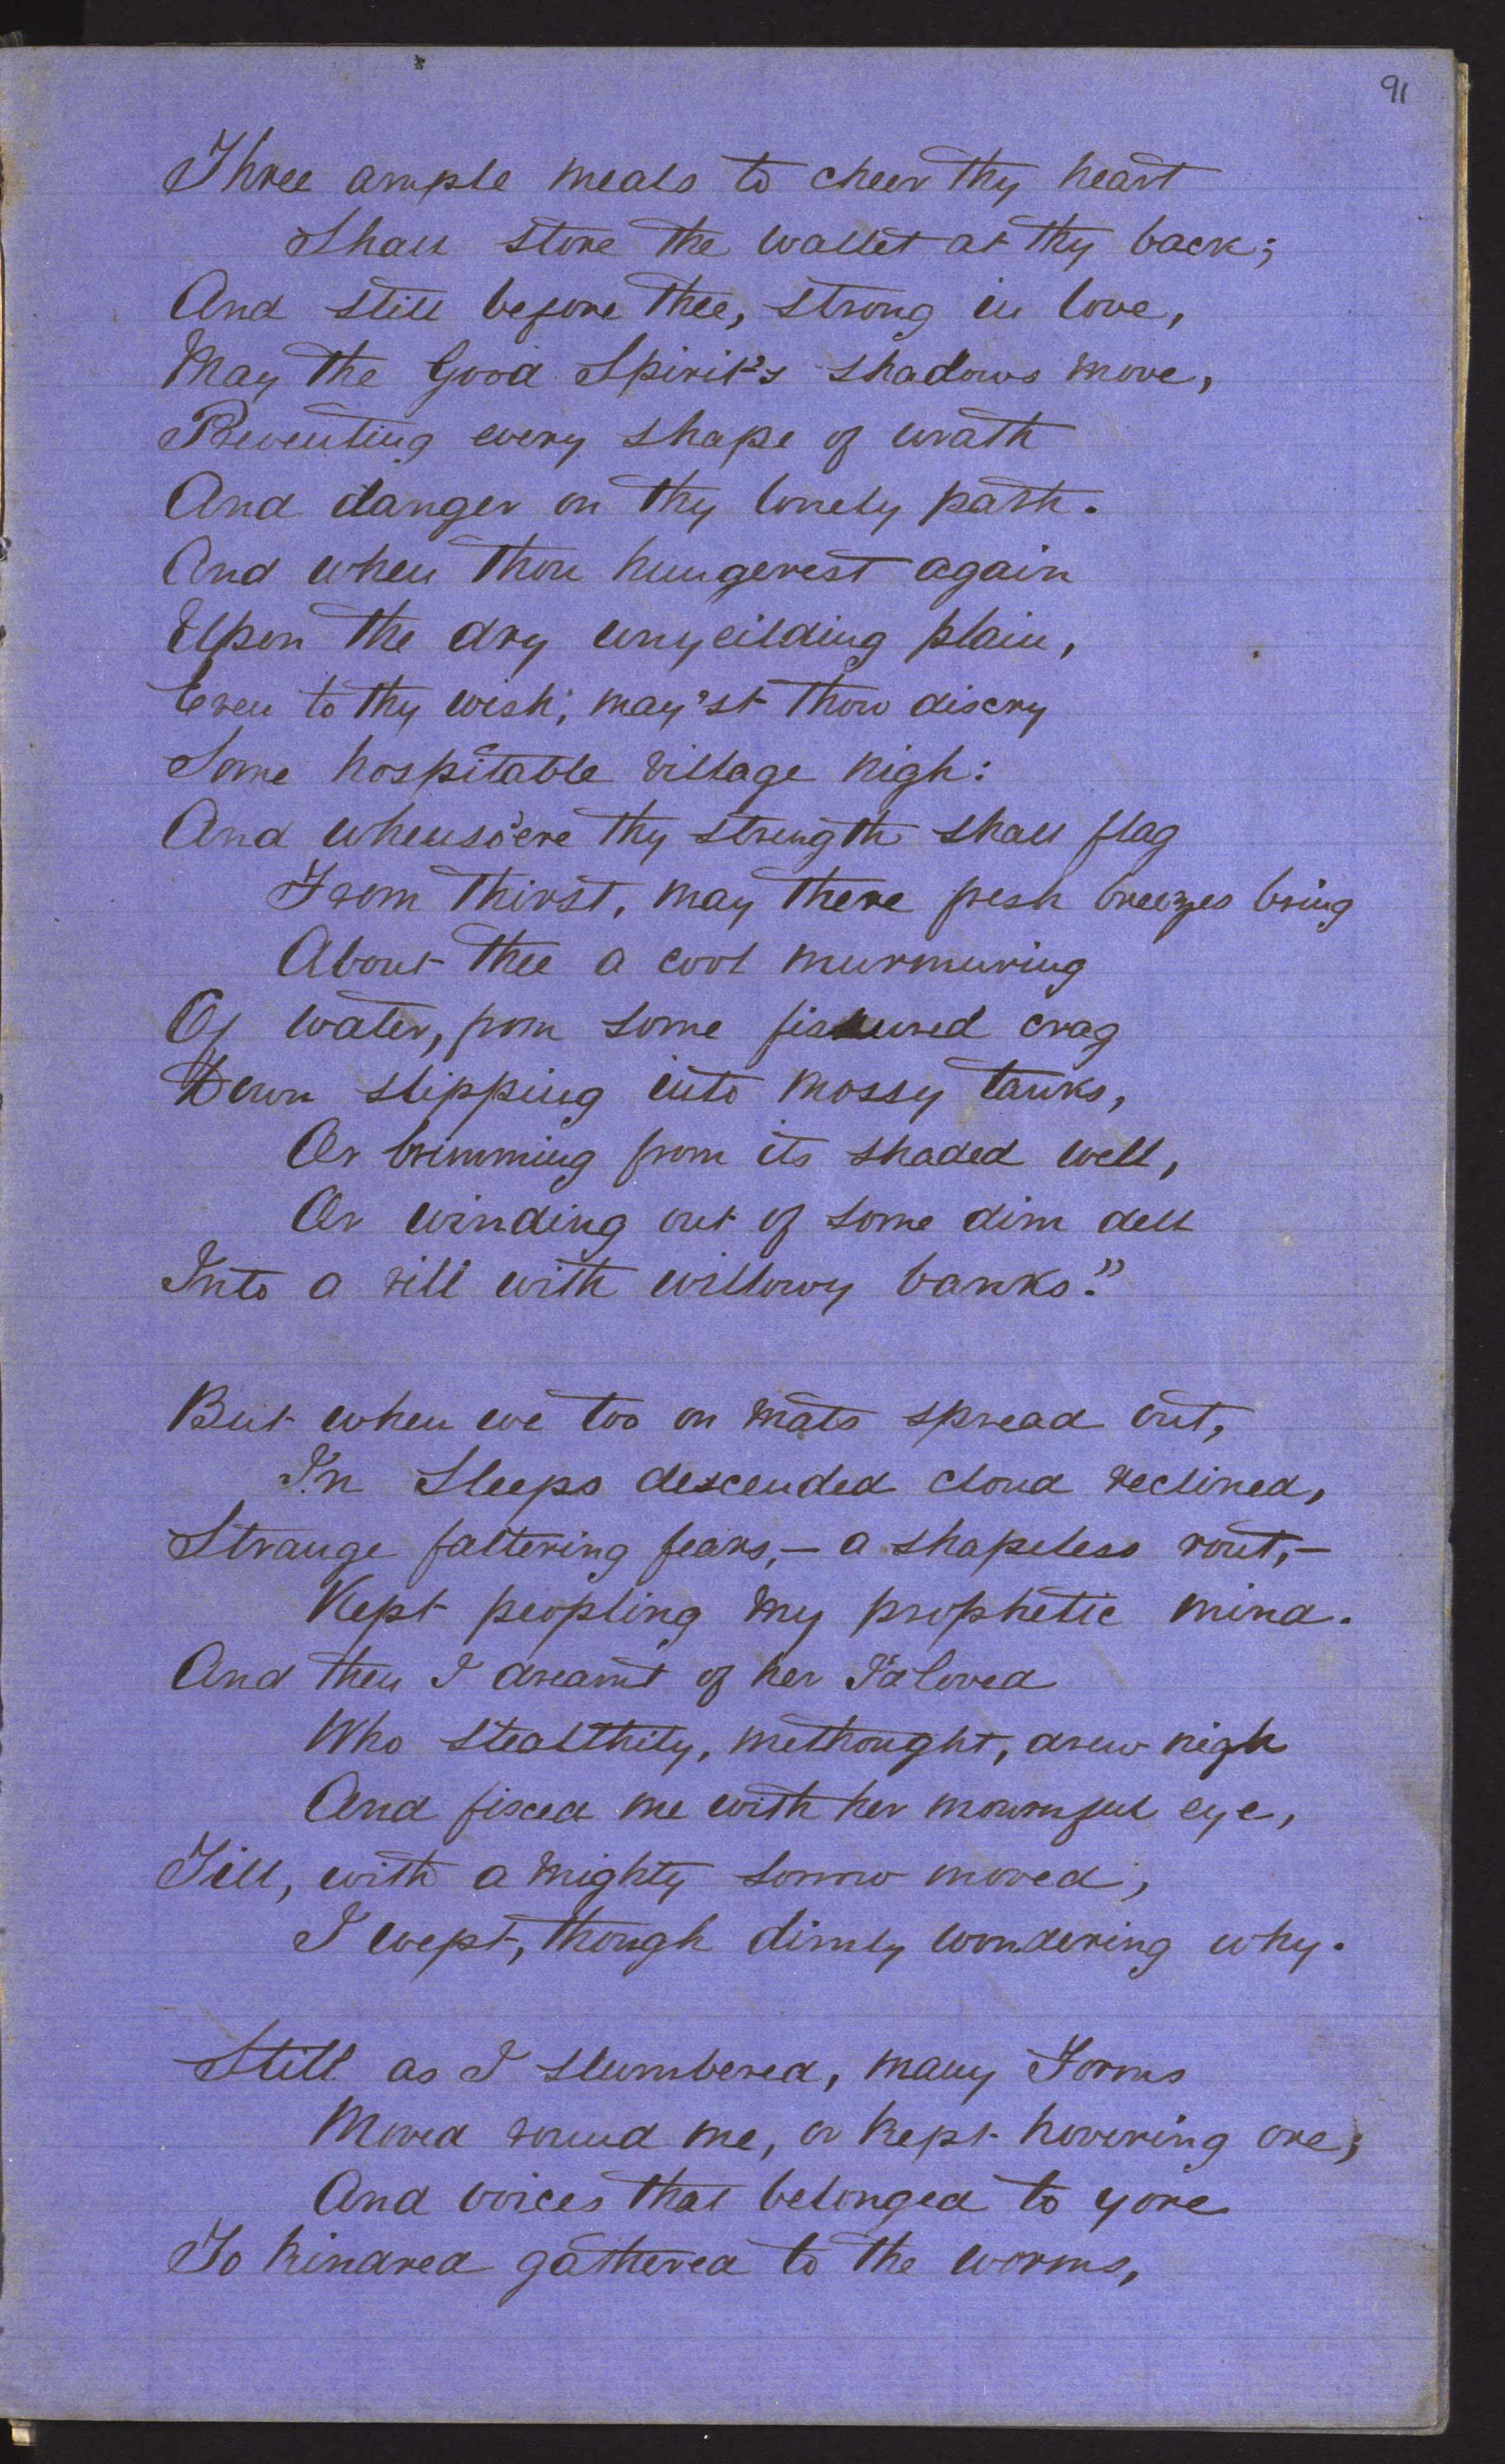 91
Three ample meals to cheer thy heart
Shall store the wallet at thy back;
And still before thee, strong in love,
May the Good Spirit's shadows move,
Preventing every shape of wrath
And danger on thy lonely path.
And when thou hungerest again
Upon the dry unyeilding plain,
Even to thy wish, may'st thou discry
Some hospitable village nigh:
And whenso'ere thy strength shall flag
From thirst, may there fresh breezes bring
About thee a cool murmuring
Of water, from some fissured crag
Down slipping into mossy tanks,
Or brimming from its shaded well,
Or winding out of some dim dell
Into a rill with willowy banks."
But when we too on mats spread out,
In Sleeps descended cloud reclined,
Strange faltering fears,— a shapeless rout,—
Kept peopling my prophetic mind.
And then I dreamt of her I'd loved
Who stealthily, methought, drew nigh
And fixed me with her mournful eye,
Till, with a mighty sorrow moved,
I wept, though dimly wondering why.
Still as I slumbered, many Forms
Moved round me, or kept hovering ore;
And voices that belonged to yore
To kindred gathered to the worms,